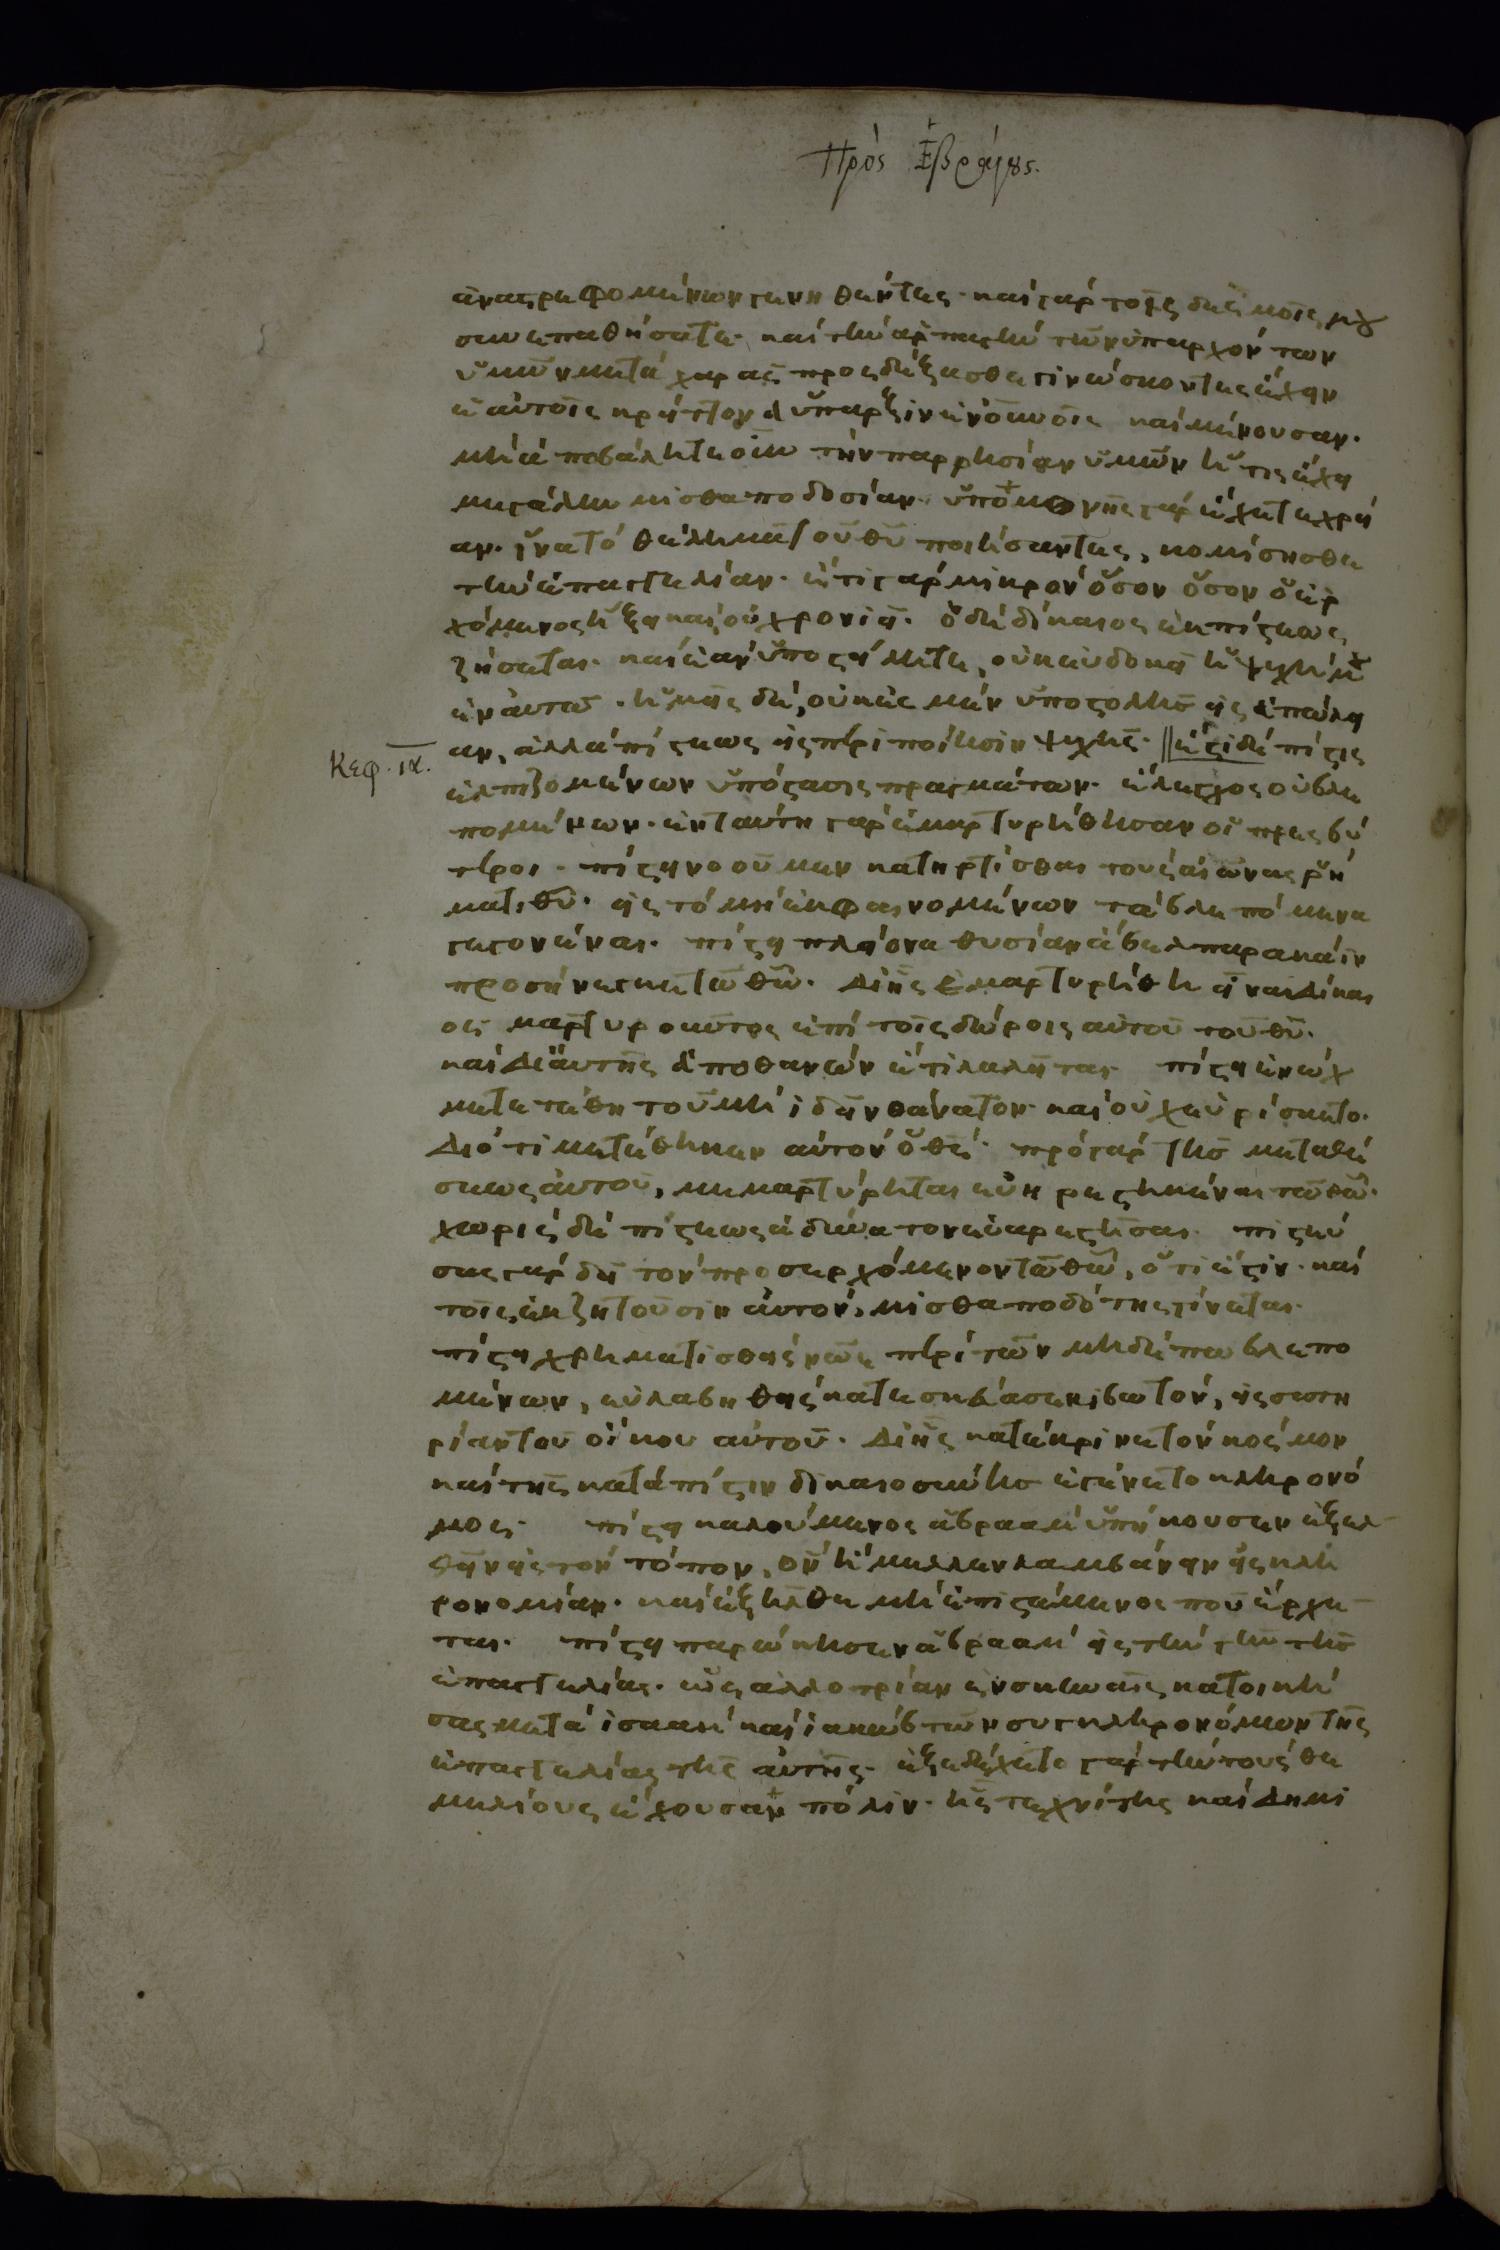 Πρὸς Ἑβραίȣς.
ἀναστρεφομένων γενηθέντες· καὶ γὰρ τοῖς δεσμοῖς μȣ
συνεπαθήσατε· καὶ τὴν ἁρπαγὴν τῶν ὑπαρχόντων
ὑμῶν μετὰ χαρᾶς προσδέξασθε γινώσκοντες ἔχειν
ἑαυτοῖς κρείττονα ὕπαρξιν ἐν οὐνοῖς καὶ μένουσαν·
μὴ ἀποβάλητε οὖν τὴν παρρησίαν ὑμῶν ἥτις ἔχει
μεγάλην μισθαποδοσίαν· ὑπομονῆς γὰρ ἔχετε χρεί
αν· ἵνα τὸ θέλημα τοῦ θῦ ποιήσαντες, κομίσησθε
τὴν ἐπαγγελίαν· ἔτι γὰρ μικρὸν ὅσον ὅσον ὁ ἐρ
χόμενος ἥξει καὶ οὐ χρονιεῖ· ὁ δὲ δίκαιος ἐκ πίστεως
ζήσεται· καὶ ἐὰν ὑποστείληται, οὐκ εὐδοκεῖ ἡ ψυχή μȣ
ἐν αὐτῶ· ἡμεῖς δὲ, οὐκ ἐσμὲν ὑποστολῆς εἰς ἀπώλει
αν, ἀλλὰ πίστεως εἰς περιποίησιν ψυχῆς· ‖ ἔστι δὲ πίστις
Κεφ. ια.
ἐλπιζομένων ὑπόστασις πραγμάτων· ἔλεγχος οὐ βλε
πομένων· ἐν ταύτη γὰρ ἐμαρτυρήθησαν οἱ πρεσβύ
τεροι· πίστει νοοῦμεν κατηρτίσθαι τοὺς αἰῶνας ῥή
ματι θῦ· εἰς τὸ μὴ ἐκ φαινομένων τὰ βλεπόμενα
γεγονέναι· πίστει πλείονα θυσίαν ἄβελ παρὰ κάϊν
προσήνεγκε τῶ θῶ· δι ἧς ἐμαρτυρήθη εἶναι δίκαι
ος μαρτυροῦντος ἐπὶ τοῖς δώροις αὐτοῦ τοῦ θῦ·
καὶ δι αὐτῆς ἀποθανὼν ἔτι λαλεῖται πίστει ἐνὼχ
μετετέθη τοῦ μὴ ἰδεῖν θάνατον· καὶ οὐχ εὑρίσκετο·
διότι μετέθηκεν αὐτὸν ὁ θς· πρὸ γὰρ τῆς μεταθέ
σεως αὐτοῦ, μεμαρτύρηται εὐηρεστηκέναι τῶ θῶ·
χωρὶς δὲ πίστεως ἀδύνατον εὐαρεστῆσαι πιστεῦ
σαι γὰρ δεῖ τὸν προσερχόμενον τῶ θῶ, ὅτι ἔστιν· καὶ
τοῖς ἐκζητοῦσιν αὐτὸν, μισθαποδότης γίνεται·
πίστει χρηματισθεὶς νῶε περὶ τῶν μηδέπω βλεπο
μένων, εὐλαβηθεὶς κατεσκεύασε κιβωτόν, εἰς σωτη
ρίαν τοῦ οἴκου αὐτοῦ· δι ἧς κατέκρινε τὸν κόσμον
καὶ τῆς κατὰ πίστιν δικαιοσύνης ἐγένετο κληρονό
μος· πίστει καλούμενος ἀβραὰμ ὑπήκουσεν ἐξελ
θεῖν εἰς τὸν τόπον, ὃν ἤμελλεν λαμβάνειν εἰς κλη
ρονομίαν· καὶ ἐξῆλθε μὴ ἐπιστάμενος ποῦ ἔρχε
ται· πίστει παρώκησεν ἀβραὰμ εἰς τὴν γῆν τῆς
ἐπαγγελίας· ὡς ἀλλοτρίαν ἐν σκηναῖς κατοική
σας μετὰ ἰσαακ καὶ ἰακὼβ τῶν συγκληρονόμων τῆς
ἐπαγγελίας τῆς αὐτῆς· ἐξεδέχετο γὰρ τὴν τοὺς θε
μελίους ἔχουσαν πόλιν· ἧς τεχνίτης καὶ δημι